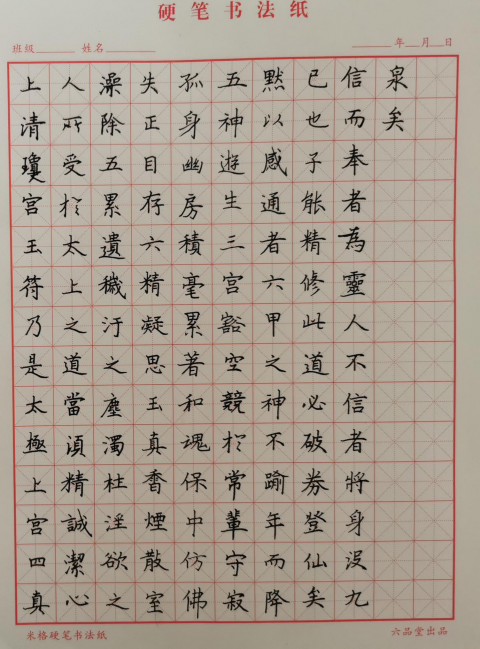 硬笔书法纸
班级 姓名 年 月 日
上清瓊宮玉符乃是太極上宮四真
人所受於太上之道當須精誠潔心
澡除五累遺穢汙之塵濁杜淫欲之
失正目存六精凝思玉真香煙散室
孤身幽房積毫累著和魂保中仿佛
五神遊生三宮豁空競於常輩守寂
默以感通者六甲之神不踰年而降
己也子能精修此道必破券登仙矣
信而奉者為靈人不信者將身没九
泉矣
米格硬笔书法纸 六品堂出品